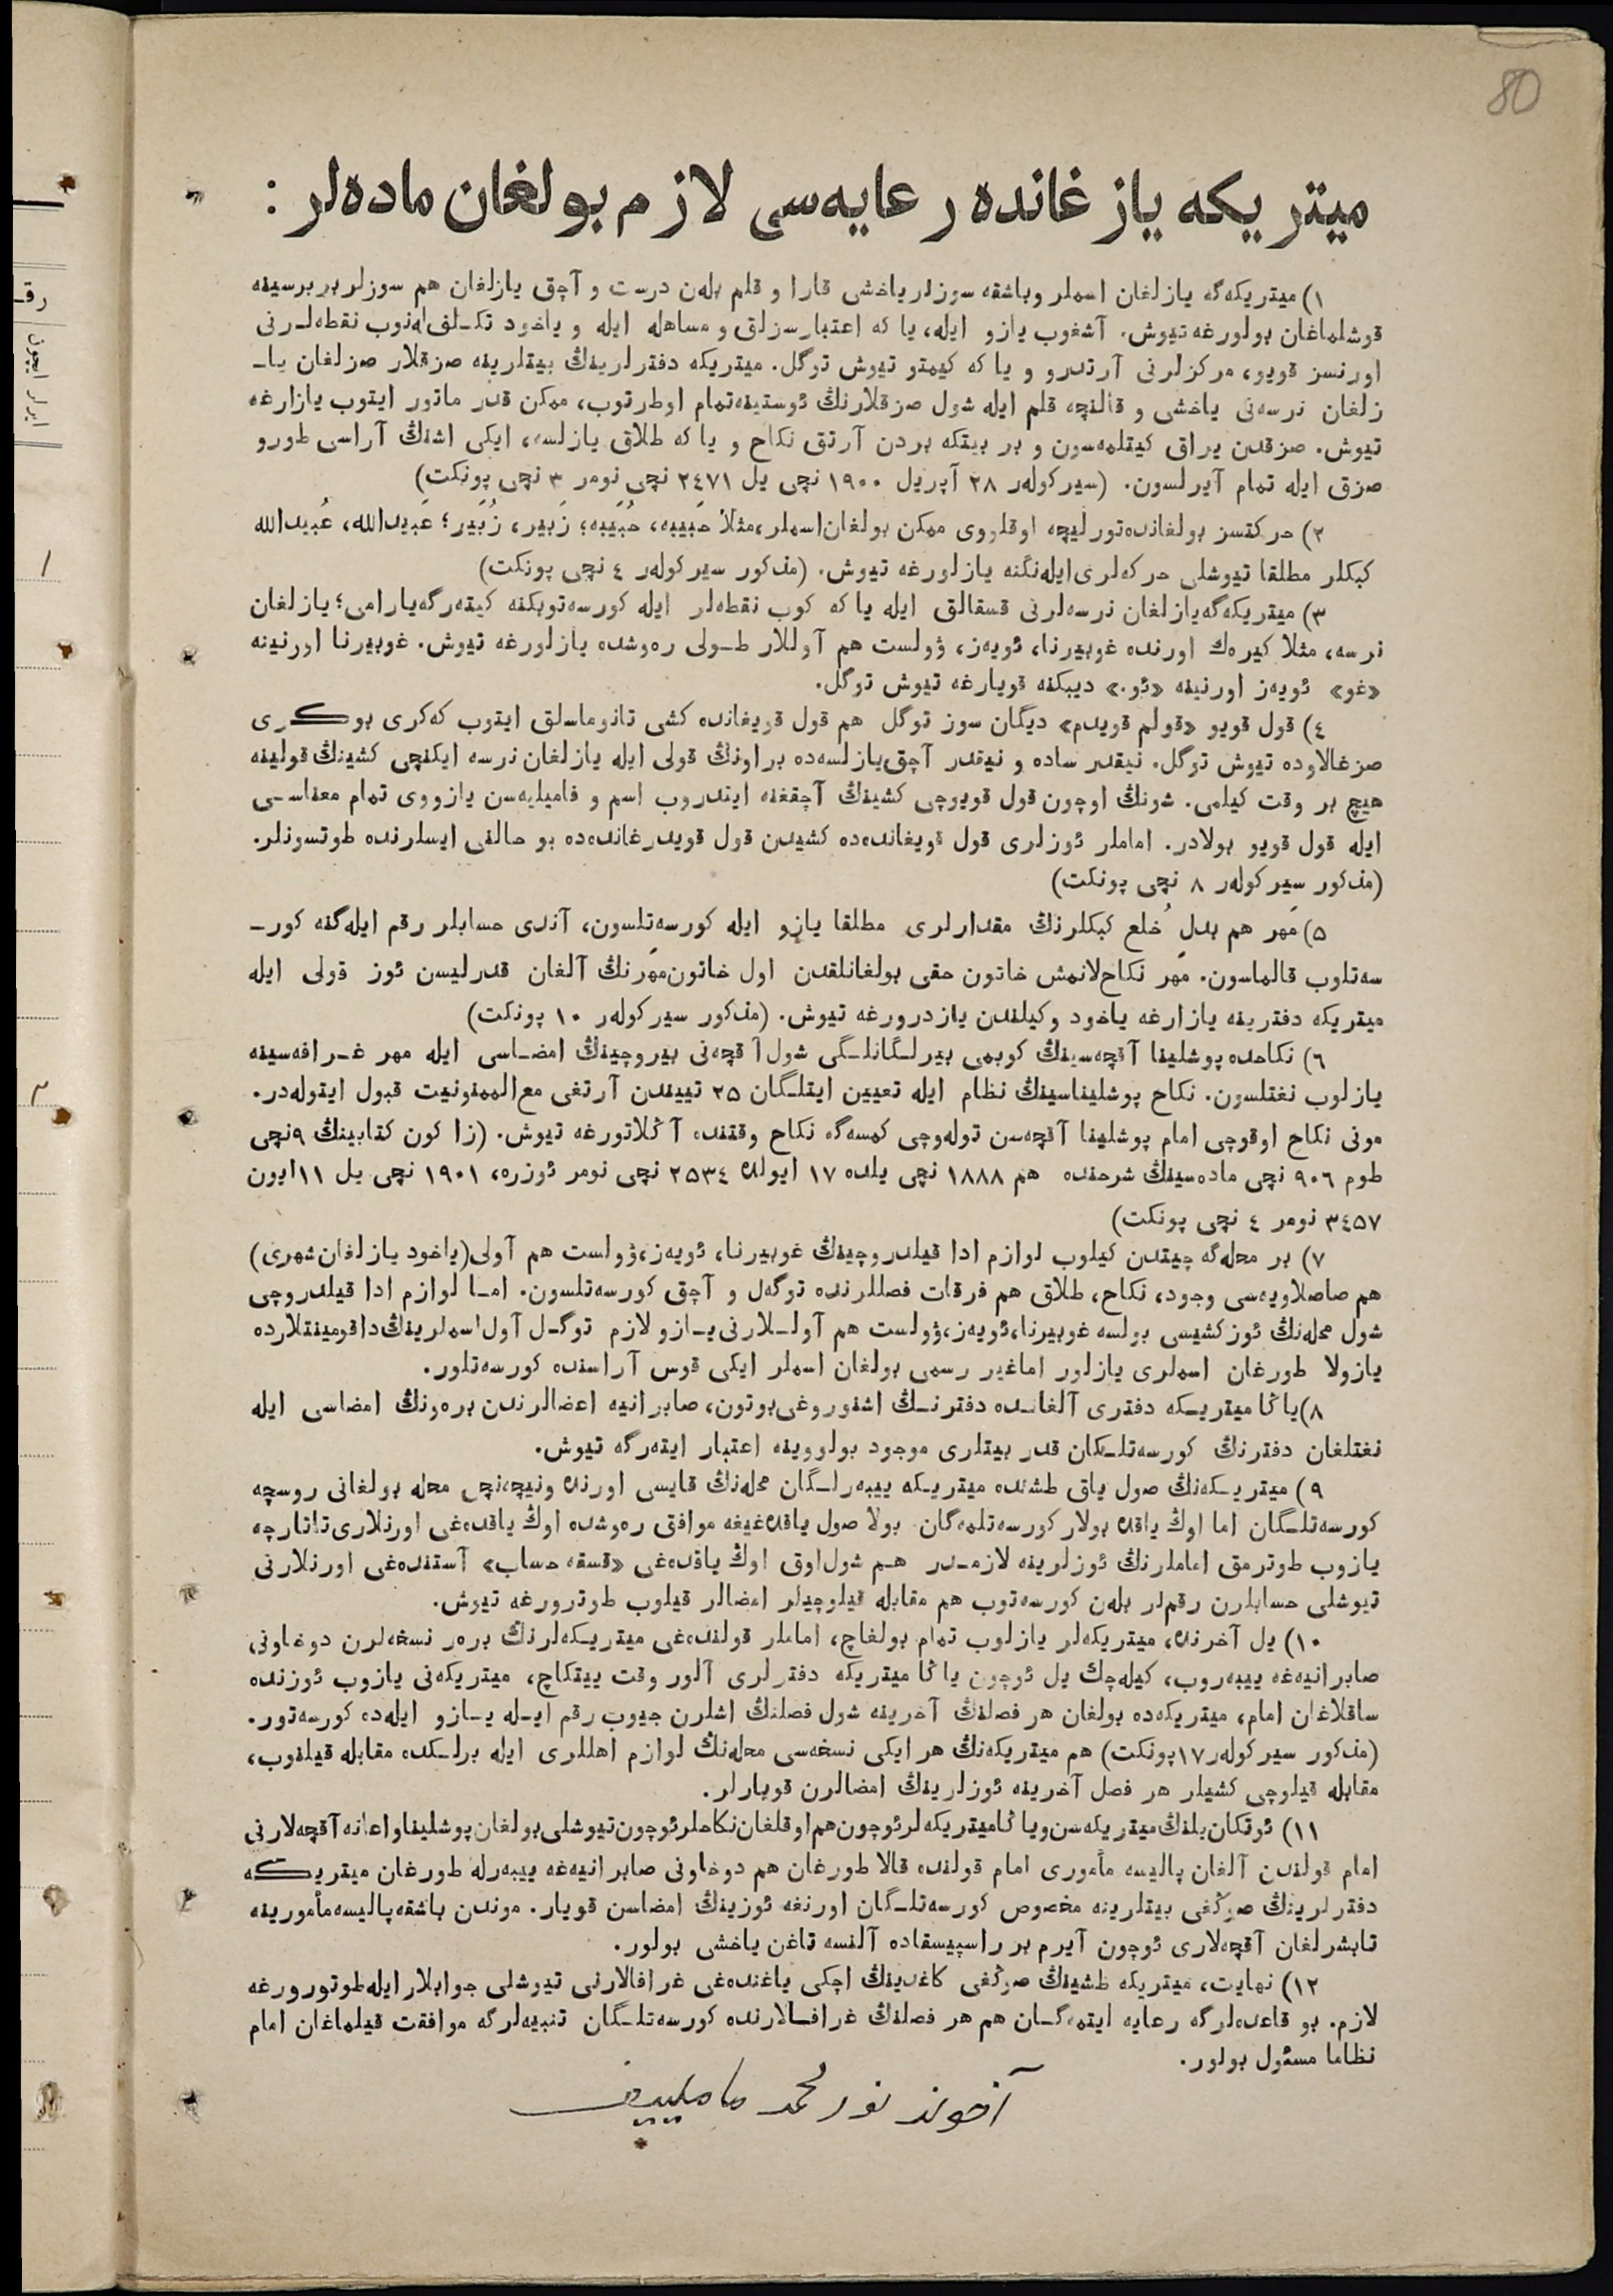 80
ميتريكه يازغانده رعايه‌سى لازم بولغان ماده‌لر :
١) ميتريكه‌گه يازلغان اسملر وباشقه سوزلر ياخشى قارا و قلم بله‌ن درست و آچق يازلغان هم سوزلر بربرسينه
قوشلماغان بولورغه تيوش. آشغوب يازو ايله، يا كه اعتبارسزلق و مساهله ايله و ياخود تكلف له‌نوب نقطه‌لرنى
اورنسز قويو، مركزلرنى آرتدرو و يا كه كيمتو تيوش توگل. ميتريكه دفترلرينڭ بيتلرينه صزقلار صزلغان يا‌ـ
زلغان نرسه‌نى ياخشى و قالنچه قلم ايله شول صزقلارنڭ ئوستينه تمام اوطرتوب، ممكن قدر ماتور ايتوب يازارغه
تيوش. صزقدن يراق كيتلمه‌سون و بر بيتكه بردن آرتق نكاح و يا كه طلاق يازلسه، ايكى اشنڭ آراسى طورو
صزق ايله تمام آيرلسون. (سيركولەر ٢٨ آپريل ١٩٠٠ نچى يل ٢٤٧١ نچى نومر ٣ نچى پونكت)
٢) حركتسز بولغانده تورليچه اوقلووى ممكن بولغان اسملر، مثلا حَبيبه، حُبَيبه؛ زَبير، زُبَير؛ عَبيدالله، عُبيدالله
كبكلر مطلقا تيوشلى حركه‌لرى ايله‌نگنه يازلورغه تيوش. (مذكور سيركولەر ٤ نچى پونكت)
٣) ميتريكه‌گه يازلغان نرسه‌لرنى قسقالق ايله يا كه كوب نقطه‌لر ايله كورسه‌توبكنه كيته‌رگه يارامى؛ يازلغان
نرسه، مثلا كيره‌ك اورنده غوبيرنا، ئويه‌ز، ۋولست هم آوللار طـولى ره‌وشده يازلورغه تيوش. غوبيرنا اورنينه
«غو» ئويه‌ز اورنينه «ئو.» ديبكنه قويارغه تيوش توگل.
٤) قول قويو «قولم قويدم» ديگان سوز توگل هم قول قويغانده كشى تانوماسلق ايتوب كه‌كرى بوكـرى
صزغالاوده تيوش توگل. نيقدر ساده و نيقدر آچق يازلسه‌ده براونڭ قولى ايله يازلغان نرسه ايكنچى كشينڭ قولينه
هيچ بر وقت كيلمى. شونڭ اوچون قول قويوچى كشينڭ آچقغنه ايتدروب اسم و فاميليه‌سن يازووى تمام معناسـى
ايله قول قويو بولادر. اماملر ئوزلرى قول قويغانده‌ده كشيدن قول قويدرغانده‌ده بو حالنى ايسلرنده طوتسونلر.
(مذكور سيركولەر ٨ نچى پونكت)
٥) مَهر هم بدل خُلع كبكلرنڭ مقدارلرى مطلقا يازو ايله كورسه‌تلسون، آندى حسابلر رقم ايله‌گنه كور‌ـ
سه‌تلوب قالماسون. مَهر نكاح‌لانمش خاتون حقى بولغانلقدن اول خاتون مَهرنڭ آلغان قدرليسن ئوز قولى ايله
ميتريكه دفترينه يازارغه ياخود وكيلندن يازدرورغه تيوش. (مذكور سيركولەر ١٠ پونكت)
٦) نكاحده پوشلينا آقچه‌سينڭ كوبمى بيرلـگانلـگى شول آقچه‌نى بيروچينڭ امضـاسى ايله مهر غـرافه‌سينه
يازلوب نغتلسون. نكاح پوشليناسينڭ نظام ايله تعيين ايتلـگان ٢٥ تييندن آرتغى مع‌الممنونيت قبول ايتوله‌در.
مونى نكاح اوقوچى امام پوشلينا آقچه‌سن توله‌وچى كمسه‌گه نكاح وقتنده آڭلاتورغه تيوش. (زاكون كتابينڭ ٩نچى
طوم ٩٠٦ نچى ماده‌سينڭ شرحنده هم ١٨٨٨ نچى يلده ١٧ ايولده ٢٥٣٤ نچى نومر ئوزره، ١٩٠١ نچى يل ١١ ايون
٣٤٥٧ نومر ٤ نچى پونكت)
٧) بر محله‌گه چيتدن كيلوب لوازم ادا قيلدروچينڭ غوبيرنا، ئويه‌ز، ۋولست هم آولى (ياخود يازلغان شهرى)
هم صاصلاويه‌سى وجود، نكاح، طلاق هم فرقات فصللرنده توگه‌ل و آچق كورسه‌تلسون. امـا لوازم ادا قيلدروچى
شول محله‌نڭ ئوز كشيسى بولسه غوبيرنا، ئويه‌ز، ۋولست هم آولـلارنى يـازو لازم توگـل آول اسملرينڭ داقومينتلارده
يازولا طورغان اسملرى يازلور اما غير رسمى بولغان اسملر ايكى قوس آراسنده كورسه‌تلور.
٨) ياڭا ميتريـكه دفترى آلغانـده دفترنـڭ اشنوروغى بوتون، صابرانيه اعضالرندن بره‌ونڭ امضاسى ايله
نغتلغان دفترنڭ كورسه‌تلـكان قدر بيتلرى موجود بولووينه اعتبار ايته‌رگه تيوش.
٩) ميتريـكه‌نڭ صول ياق طشنده ميتريـكه ييبه‌رلـگان محله‌نڭ قايسى اورنده و نيچه‌نچى محله بولغانى روسچه
كورسه‌تلـگان اما اوڭ ياقده بولار كورسه‌تلمه‌گان. بولا صول ياقده‌غيغه موافق ره‌وشده اوڭ ياقده‌غى اورنلارى تاتارچه
يازوب طوترمق اماملرنڭ ئوزلرينه لازمـدر هـم شول اوق اوڭ ياقده‌غى «قسقه حساب» آستنده‌غى اورنلارنى
تيوشلى حسابلرن رقملر بله‌ن كورسه‌توب هم مقابله قيلوچيلر امضالر قيلوب طوترورغه تيوش.
١٠) يل آخرنده، ميتريكه‌لر يازلوب تمام بولغاچ، اماملر قولنده‌غى ميتريـكه‌لرنڭ بره‌ر نسخه‌لرن دوخاونى
صابرانيه‌غه ييبه‌روب، كيله‌چك يل ئوچون ياڭا ميتريكه دفترلرى آلور وقت ييتكاچ، ميتريكه‌نى يازوب ئوزنده
ساقلاغان امام، ميتريكه‌ده بولغان هر فصلنڭ آخرينه شول فصلنڭ اشلرن جيوب رقم ايـله يـازو ايله‌ده كورسه‌تور.
(مذكور سيركولەر ١٧ پونكت) هم ميتريكه‌نڭ هر ايكى نسخه‌سى محله‌نڭ لوازم اهللرى ايله برلـكده مقابله قيلنوب،
مقابله قيلوچى كشيلر هر فصل آخرينه ئوزلرينڭ امضالرن قويارلر.
١١) ئوتكان يلنڭ ميتريكه‌سن و ياڭا ميتريكه‌لر ئوچون هم اوقلغان نكاحلر ئوچون تيوشلى بولغان پوشلينا و اعانه آقچه‌لارنى
امام قولندن آلغان پاليسه مأمورى امام قولنده قالا طورغان هم دوخاونى صابرانيه‌غه ييبه‌رله طورغان ميتريـكه
دفترلرينڭ صوڭغى بيتلرينه مخصوص كورسه‌تلـگان اورنغه ئوزينڭ امضاسن قويار. موندن باشقه پاليسه مأمورينه
تابشرلغان آقچه‌لارى ئوچون آيرم بر راسپيسقاده آلنسه تاغن ياخشى بولور.
١٢) نهايت، ميتريكه طشينڭ صوڭغى كاغدينڭ اچكى ياغنده‌غى غرافالارنى تيوشلى جوابلار ايله طوتورورغه
لازم. بو قاعده‌لرگه رعايه ايتمه‌گـان هم هر فصلنڭ غرافـالارنده كورسه‌تلـگان تنبيه‌لرگه موافقت قيلماغان امام
نظاما مسئول بولور.
آخوند نورمحمد ماملييف